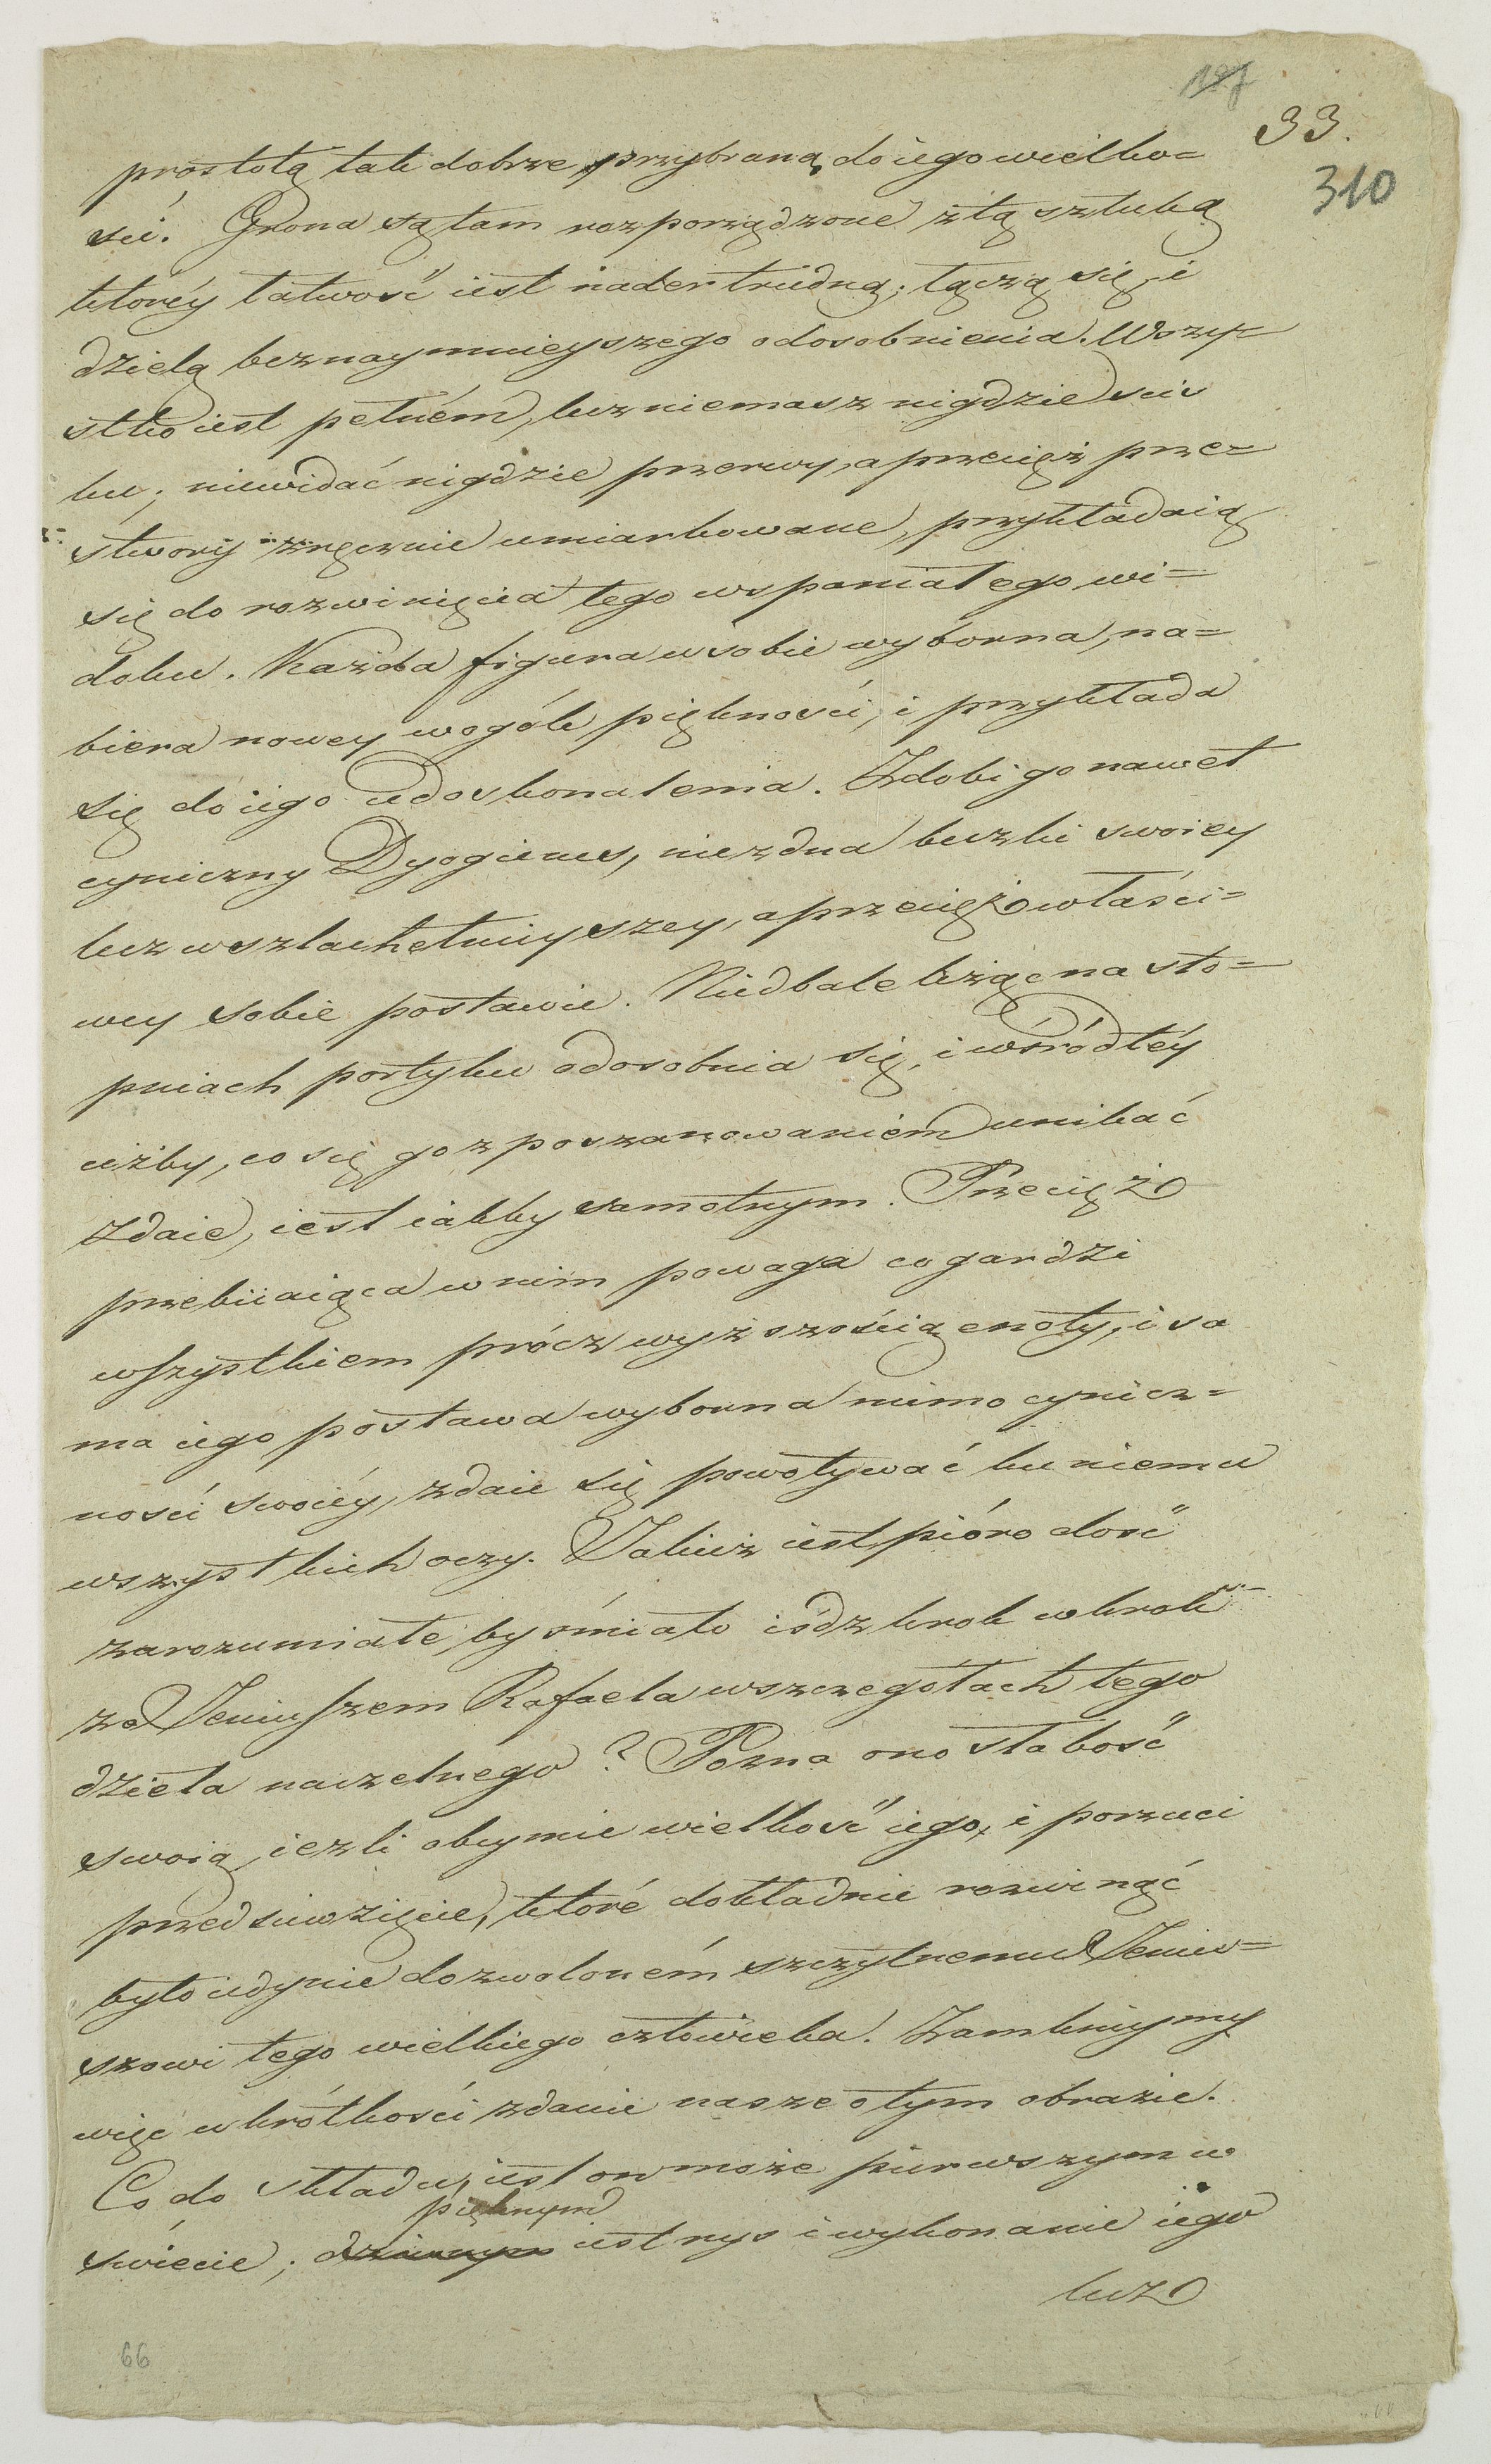 197
33.
310
prostotą tak dobrze przybraną do iego wielko=
ści. Grona są tam rozporządzone z tą sztuką
któréy łatwość iest nader trudną; łączą się, i
dzielą bez naymnieyszego odosobnienia. Wszy=
stko iest pełném, lecz niemasz nigdzie ścis
ku; niewidać nigdzie przerwy, a przecięż prze=
stwory zręcznie umiarkowane, przykładaią
się do rozwinięcia tego wspaniałego wi=
doku. Każda figura w sobie wyborna, na=
biera nowey w ogóle piękności, i przykłada
się do iego udoskonalenia. Zdobi go nawet
cyniczny Dyogienes, niezdna beczki swoiey
lecz w szlachetnieyszey, a przecięż właści=
wey sobie postawie. Niedbale leżąc na sto=
pniach portyku odosobnia się, i wśród téy
ciżby, co się go z poszanowaniem unikać
zdaie, iest iakby samotnym. Przecięż
przebiiaiąca w nim powaga co gardzi
wszystkiem prócz wyższością cnoty, i sa
ma iego postawa wyborna mimo cynicz=
ności swoiéy, zdaie się powoływać ku niemu
wszystkich oczy. Jakież iest pióro dość
zarozumiałe, by śmiało iśdz krok w krok
za Jeniuszem Rafaela w szczegółach tego
dzieła naczelnego? Pozna ono słabość
swoią, ieżli obeymie wielkość iego, i porzuci
przedsiewzięcie, które dokładnie rozwinąć
było iedynie dozwoloném szczytnemu Jeniu=
szowi tego wielkiego człowieka. Zamkniymy
więc w krótkości zdanie nasze o tym obrazie.
Co do składu, iest on może pierwszym w
pięknym
świecie; dziwnym iest rys i wykonanie iego
lecz
66